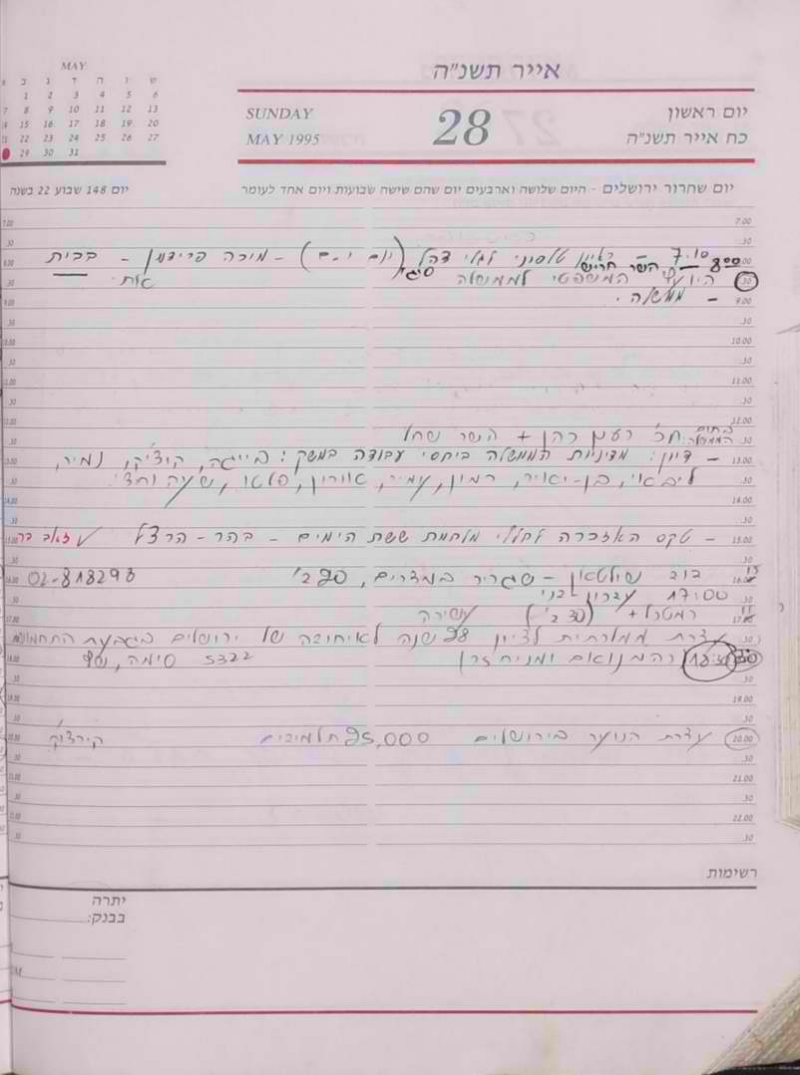 MAY
אייר תשנ"ה
ב ג ד ה ו ש
1 2 3 4 5 6
7 8 9 10 11 12 13
14 15 16 17 18 19 20
21 22 23 24 25 26 27
29 30 31
SUNDAY
MAY 1995
28
יום ראשון
כח אייר תשנ"ה
יום שחרור ירושלים - היום שלושה וארבעים יום שהם שישה שבועות ויום אחד לעומר
יום 148 שבוע 22 בשנה
7.00
.30
7.10 - ראיון טלפוני לגלי צהל - מיכה פרידמן - בבית
8.00 - השר חריש
.30 היועץ המשפטי לממשלה
9.00 - ממשלה.
.30
10.00
.30
11.00
.30
12.00
.30 בתום הממשלה ח"כ רענן כהן + השר שחל
13.00 - דיון: מדיניות הממשלה ביחסי עבודה במשק: בייגה, קוצ'יק, נמיר,
.30 ליבאי, בן-יאיר, רמון, עמיר, אורון, פלטו, שעיה וחדי
14.00
.30
15.00 - טקס האזכרה לחללי מלחמת ששת הימים - בהר-הרצל
.30
16.00 דוד סולטאן - שגריר במצרים, 20 ב' 02-818293
.30 17:00
17.00 רמטכל +
.30 עצרת ממלכתית לציון 28 שנה לאיחודה של ירושלים בגבעת התחמושת
18:30 5322 סימה,
.30
19.00
.30
20.00 עצרת הנוער בירושלים 25,000 תלמידים
.30
21.00
.30
22.00
.30
רשימות
יתרה
בבנק: